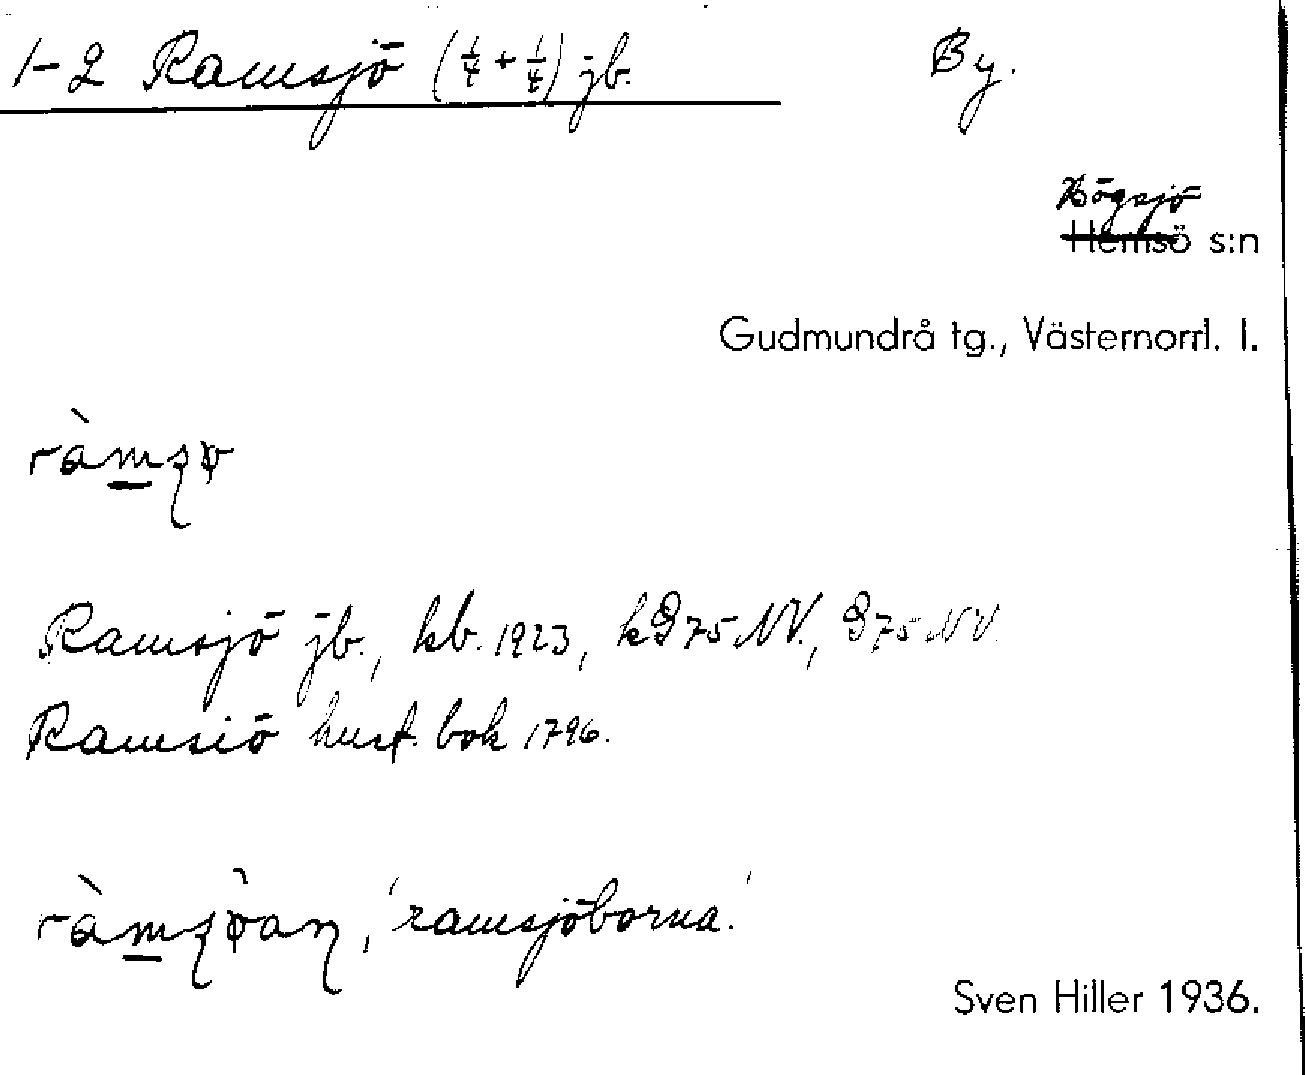 1-2 Ramsjö (1/4 + 1/4) jb. By.
Högsjö
Hemsö s:n
Gudmundrå tg., Västernorrl. l.
Ramsjö jb., kb. 1923, kG 75 NV., G 75 NV.
Ramsiö husf. bok 1796.
'ramsjöborna.'
Sven Hiller 1936.